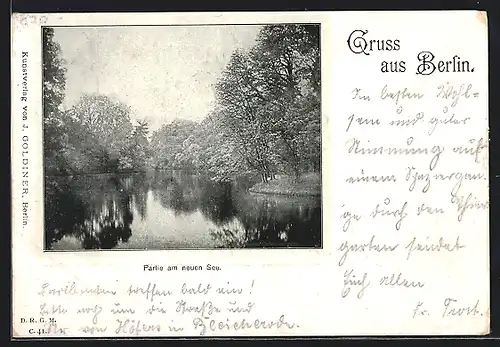 Kunstverlag von J. GOLDINER, Berlin.
Gruss
aus Berlin.
In besten Wohl-
sein und guter
Stimmung auf
einem Spaziergan-
ge durch den Thier-
garten sendet
Euch allen
Fr. Trost.
Partie am neuen See.
treffen bald ein!
Bitte noch um die Straße und
Nr von Höfers in Bleicherode.
D. R. G. M.
C. 41.